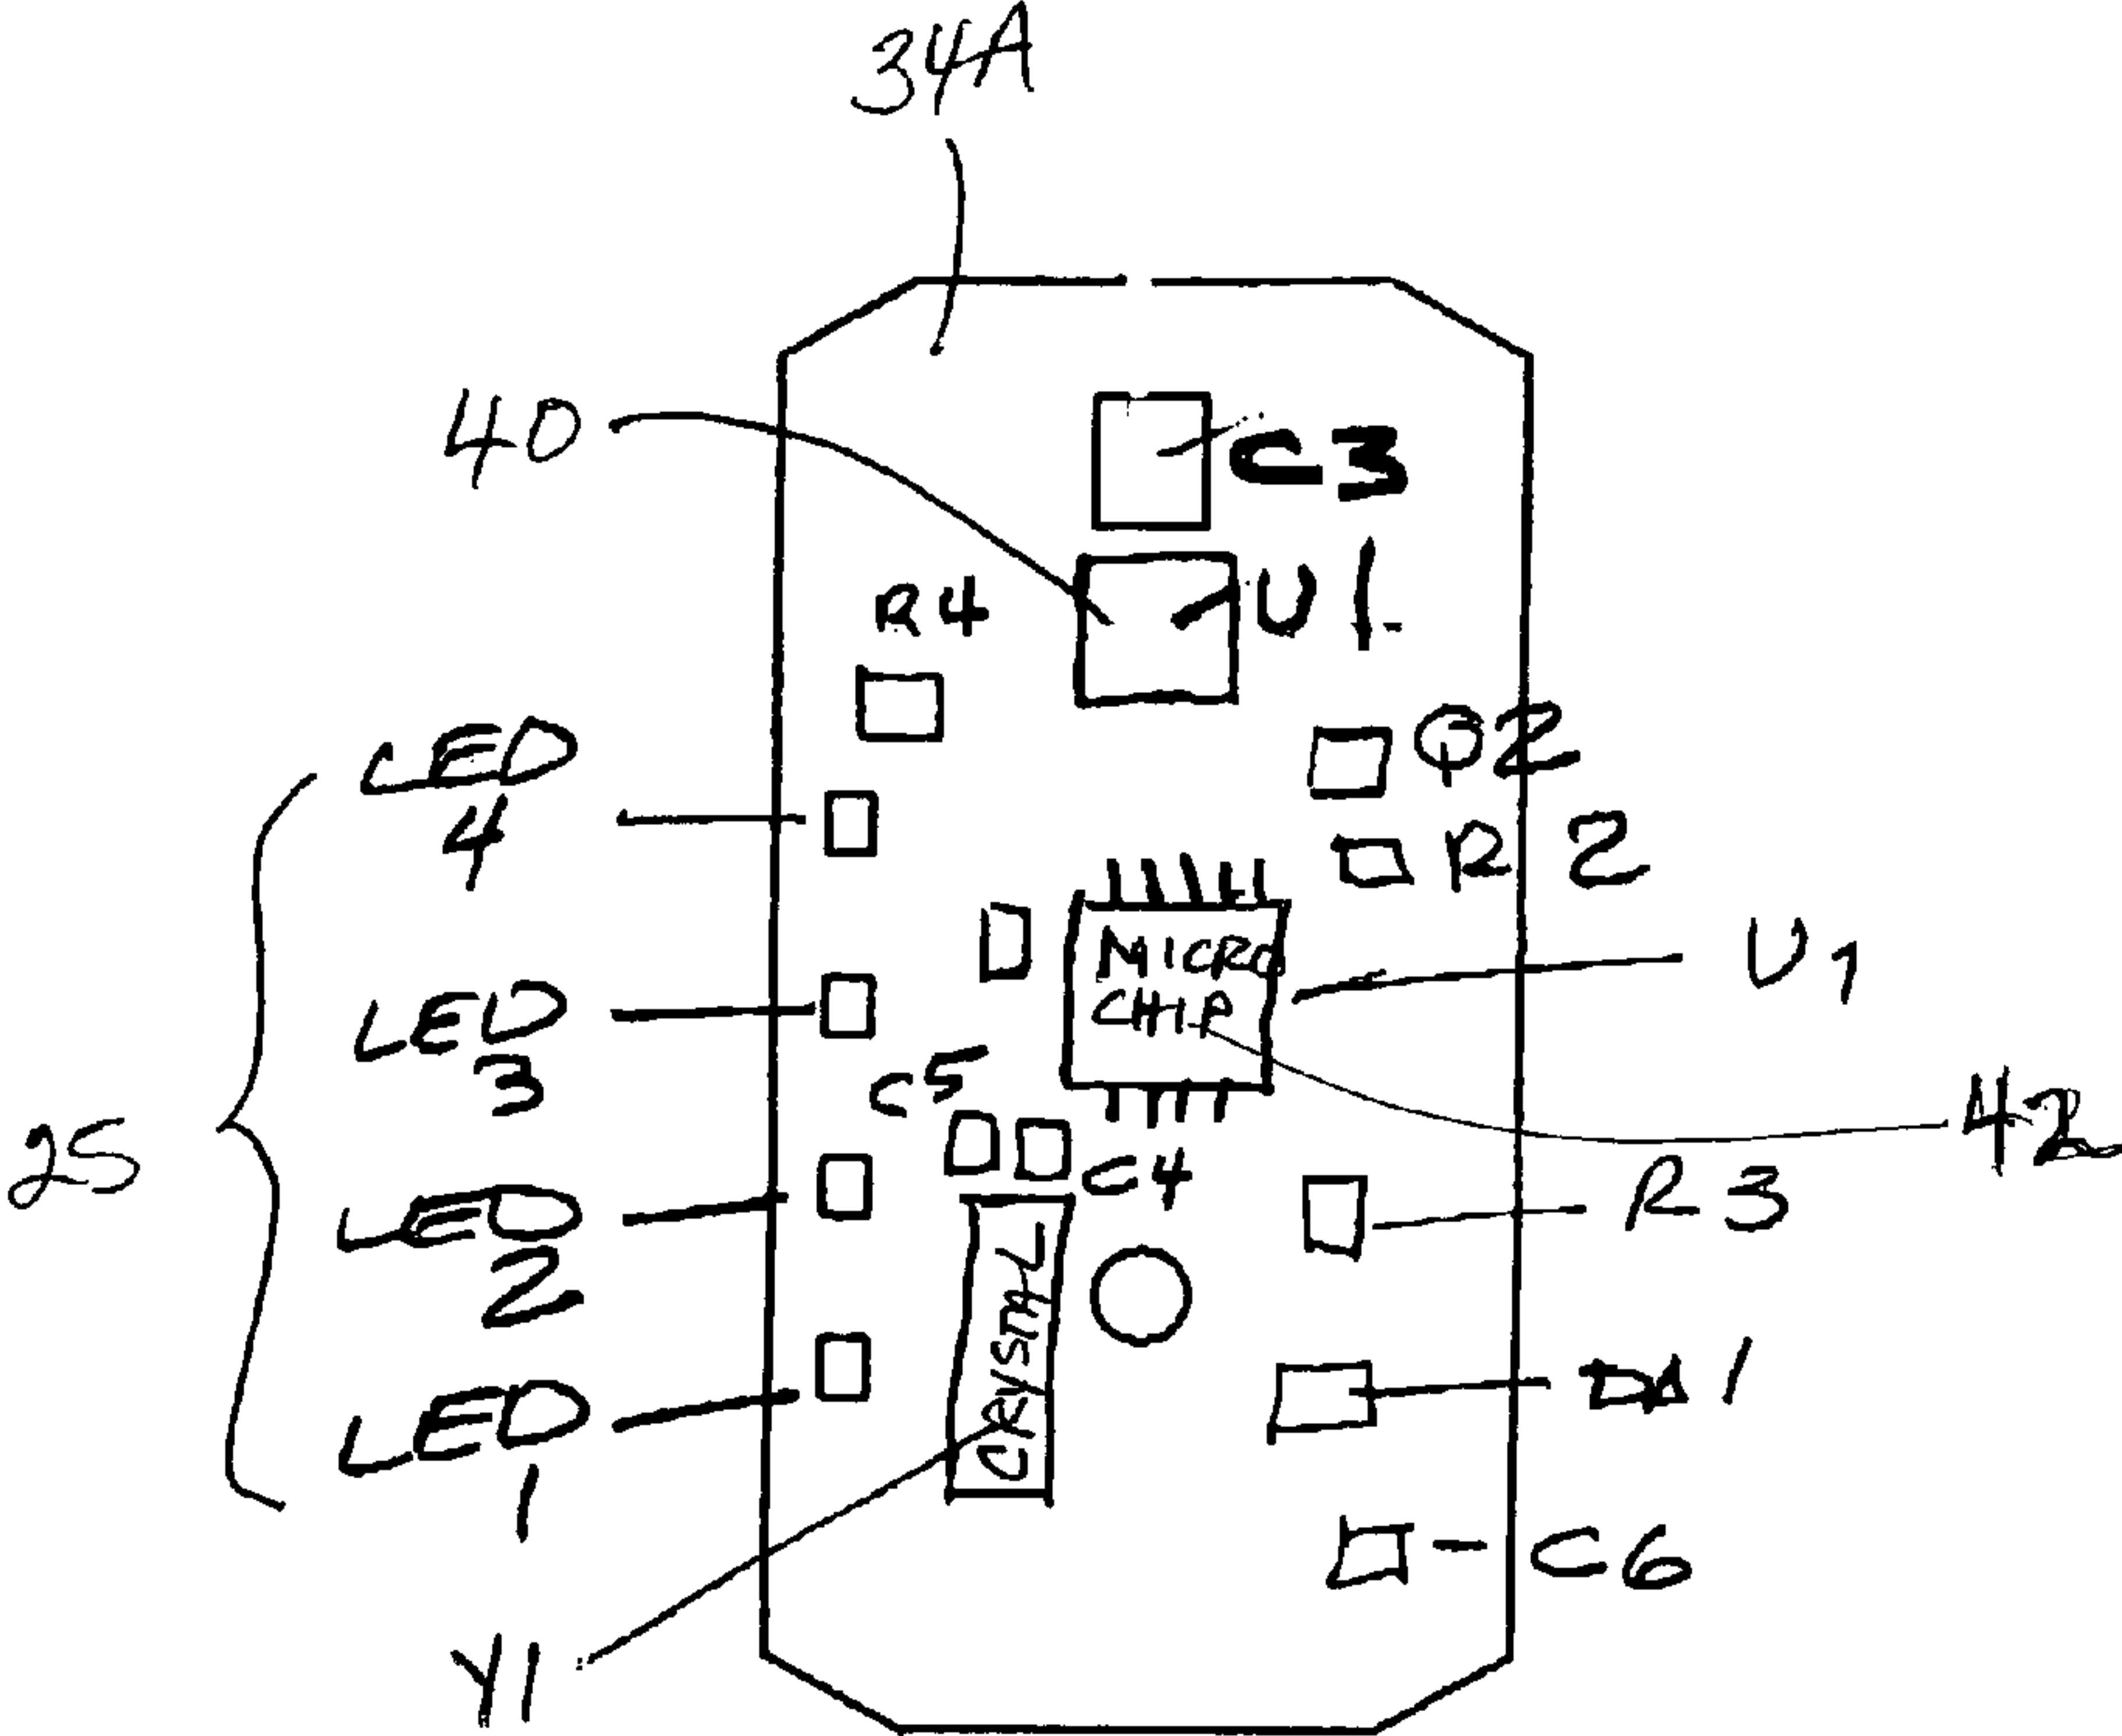 34A
40
C3
U1
R4
LED
4
Q2
R2
MICRO
CHIP
U1
LED
3
C5
42
25
C4
R3
LED
2
CRYSTAL
LED
1
C6
Y1